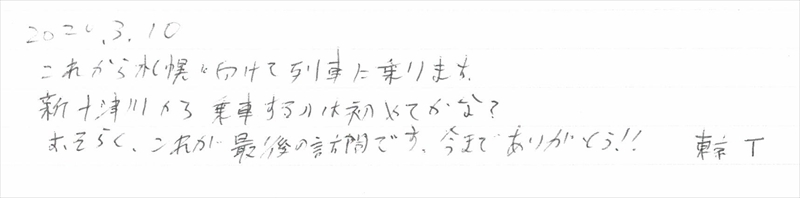 2020.3.10
これから札幌に向けて列車に乗ります。
新十津川から乗車するのは初めてかな？
おそらく、これが最後の訪問です。今までありがとう!! 東京 T